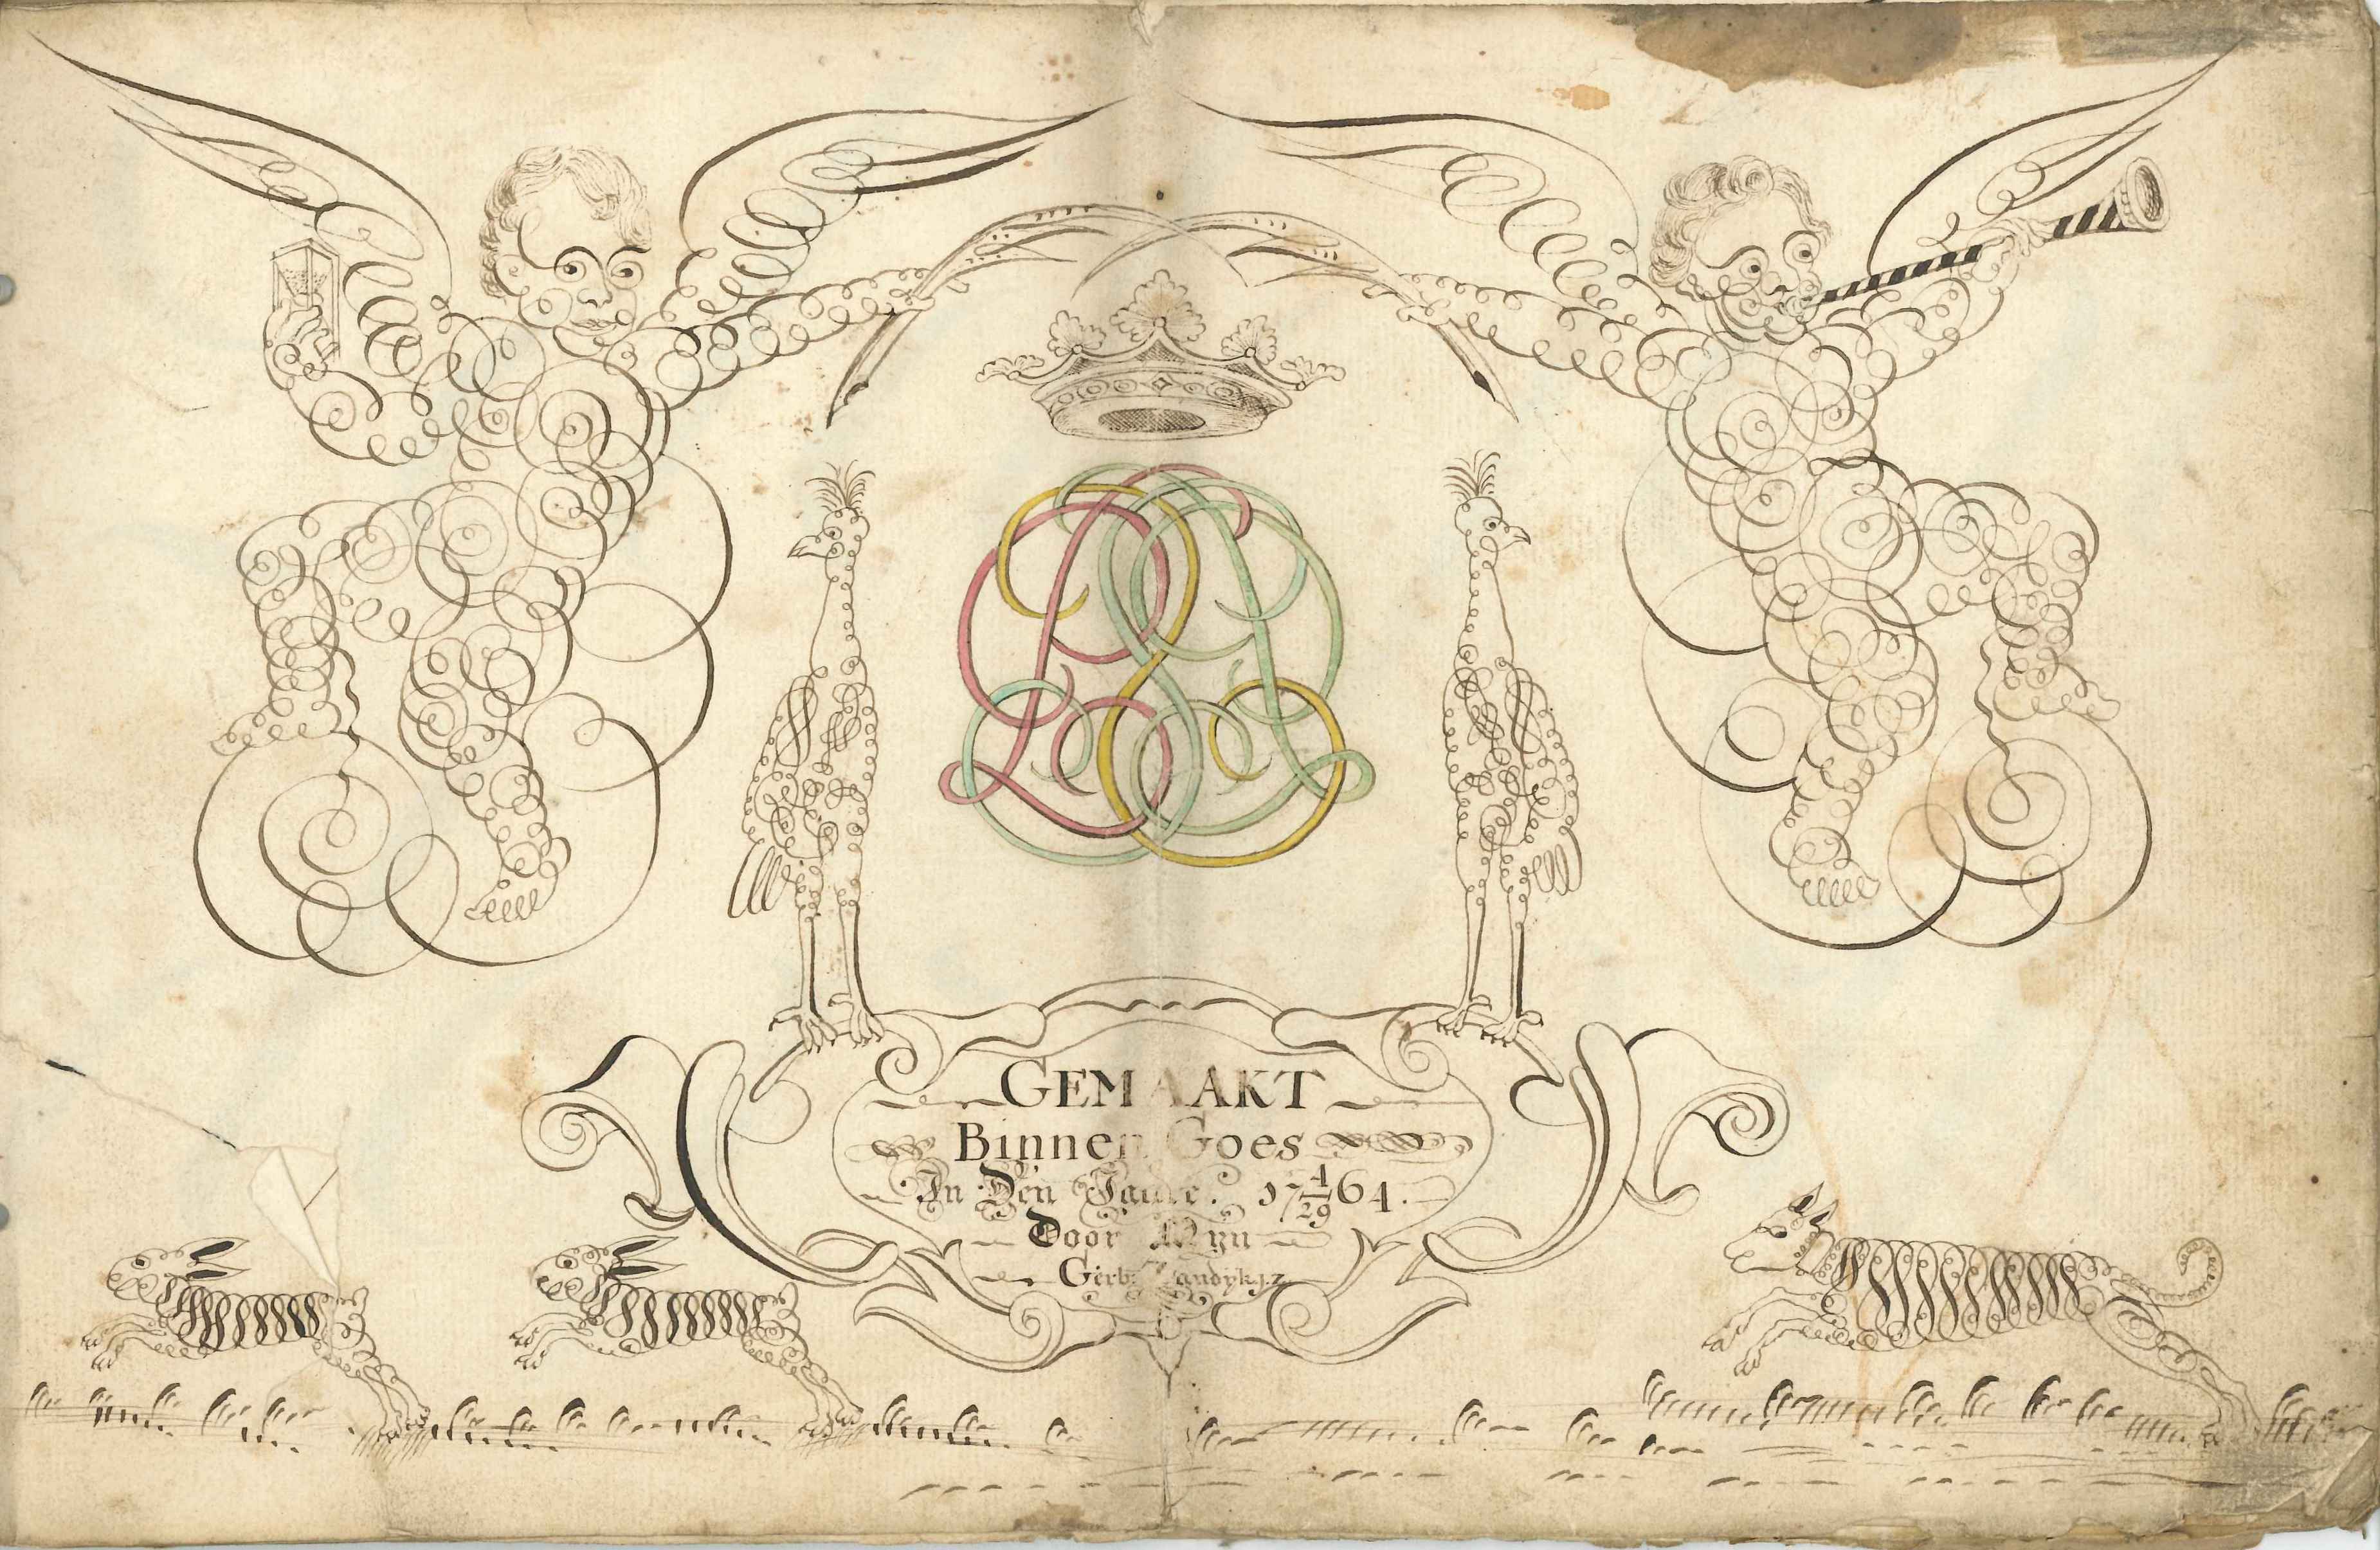 GEMAAKT
Binnen Goes
In Den Jaare. 17 4/29 64.
Door Myn
Gerb: Vandyk j.z.